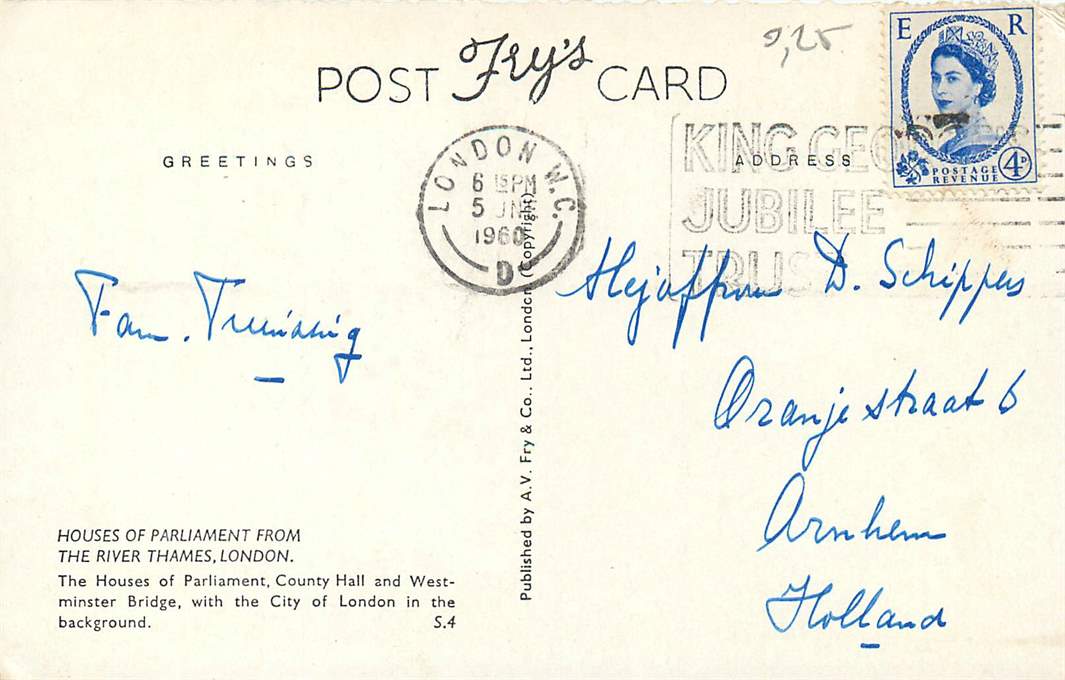 POST Fry's CARD
9,25
E R
4D
POSTAGE
REVENUE
GREETINGS
ADDRESS
LONDON W.C.
6 15 PM
5 JNE
1960
D
KING GEO
JUBILEE
TRUS
Fam.
D. Schippers
Oranjestraat 6
Arnhem
Holland
Published by A.V. Fry & Co., Ltd., London (Copyright)
HOUSES OF PARLIAMENT FROM
THE RIVER THAMES, LONDON.
The Houses of Parliament, County Hall and West-
minster Bridge, with the City of London in the
background. S.4